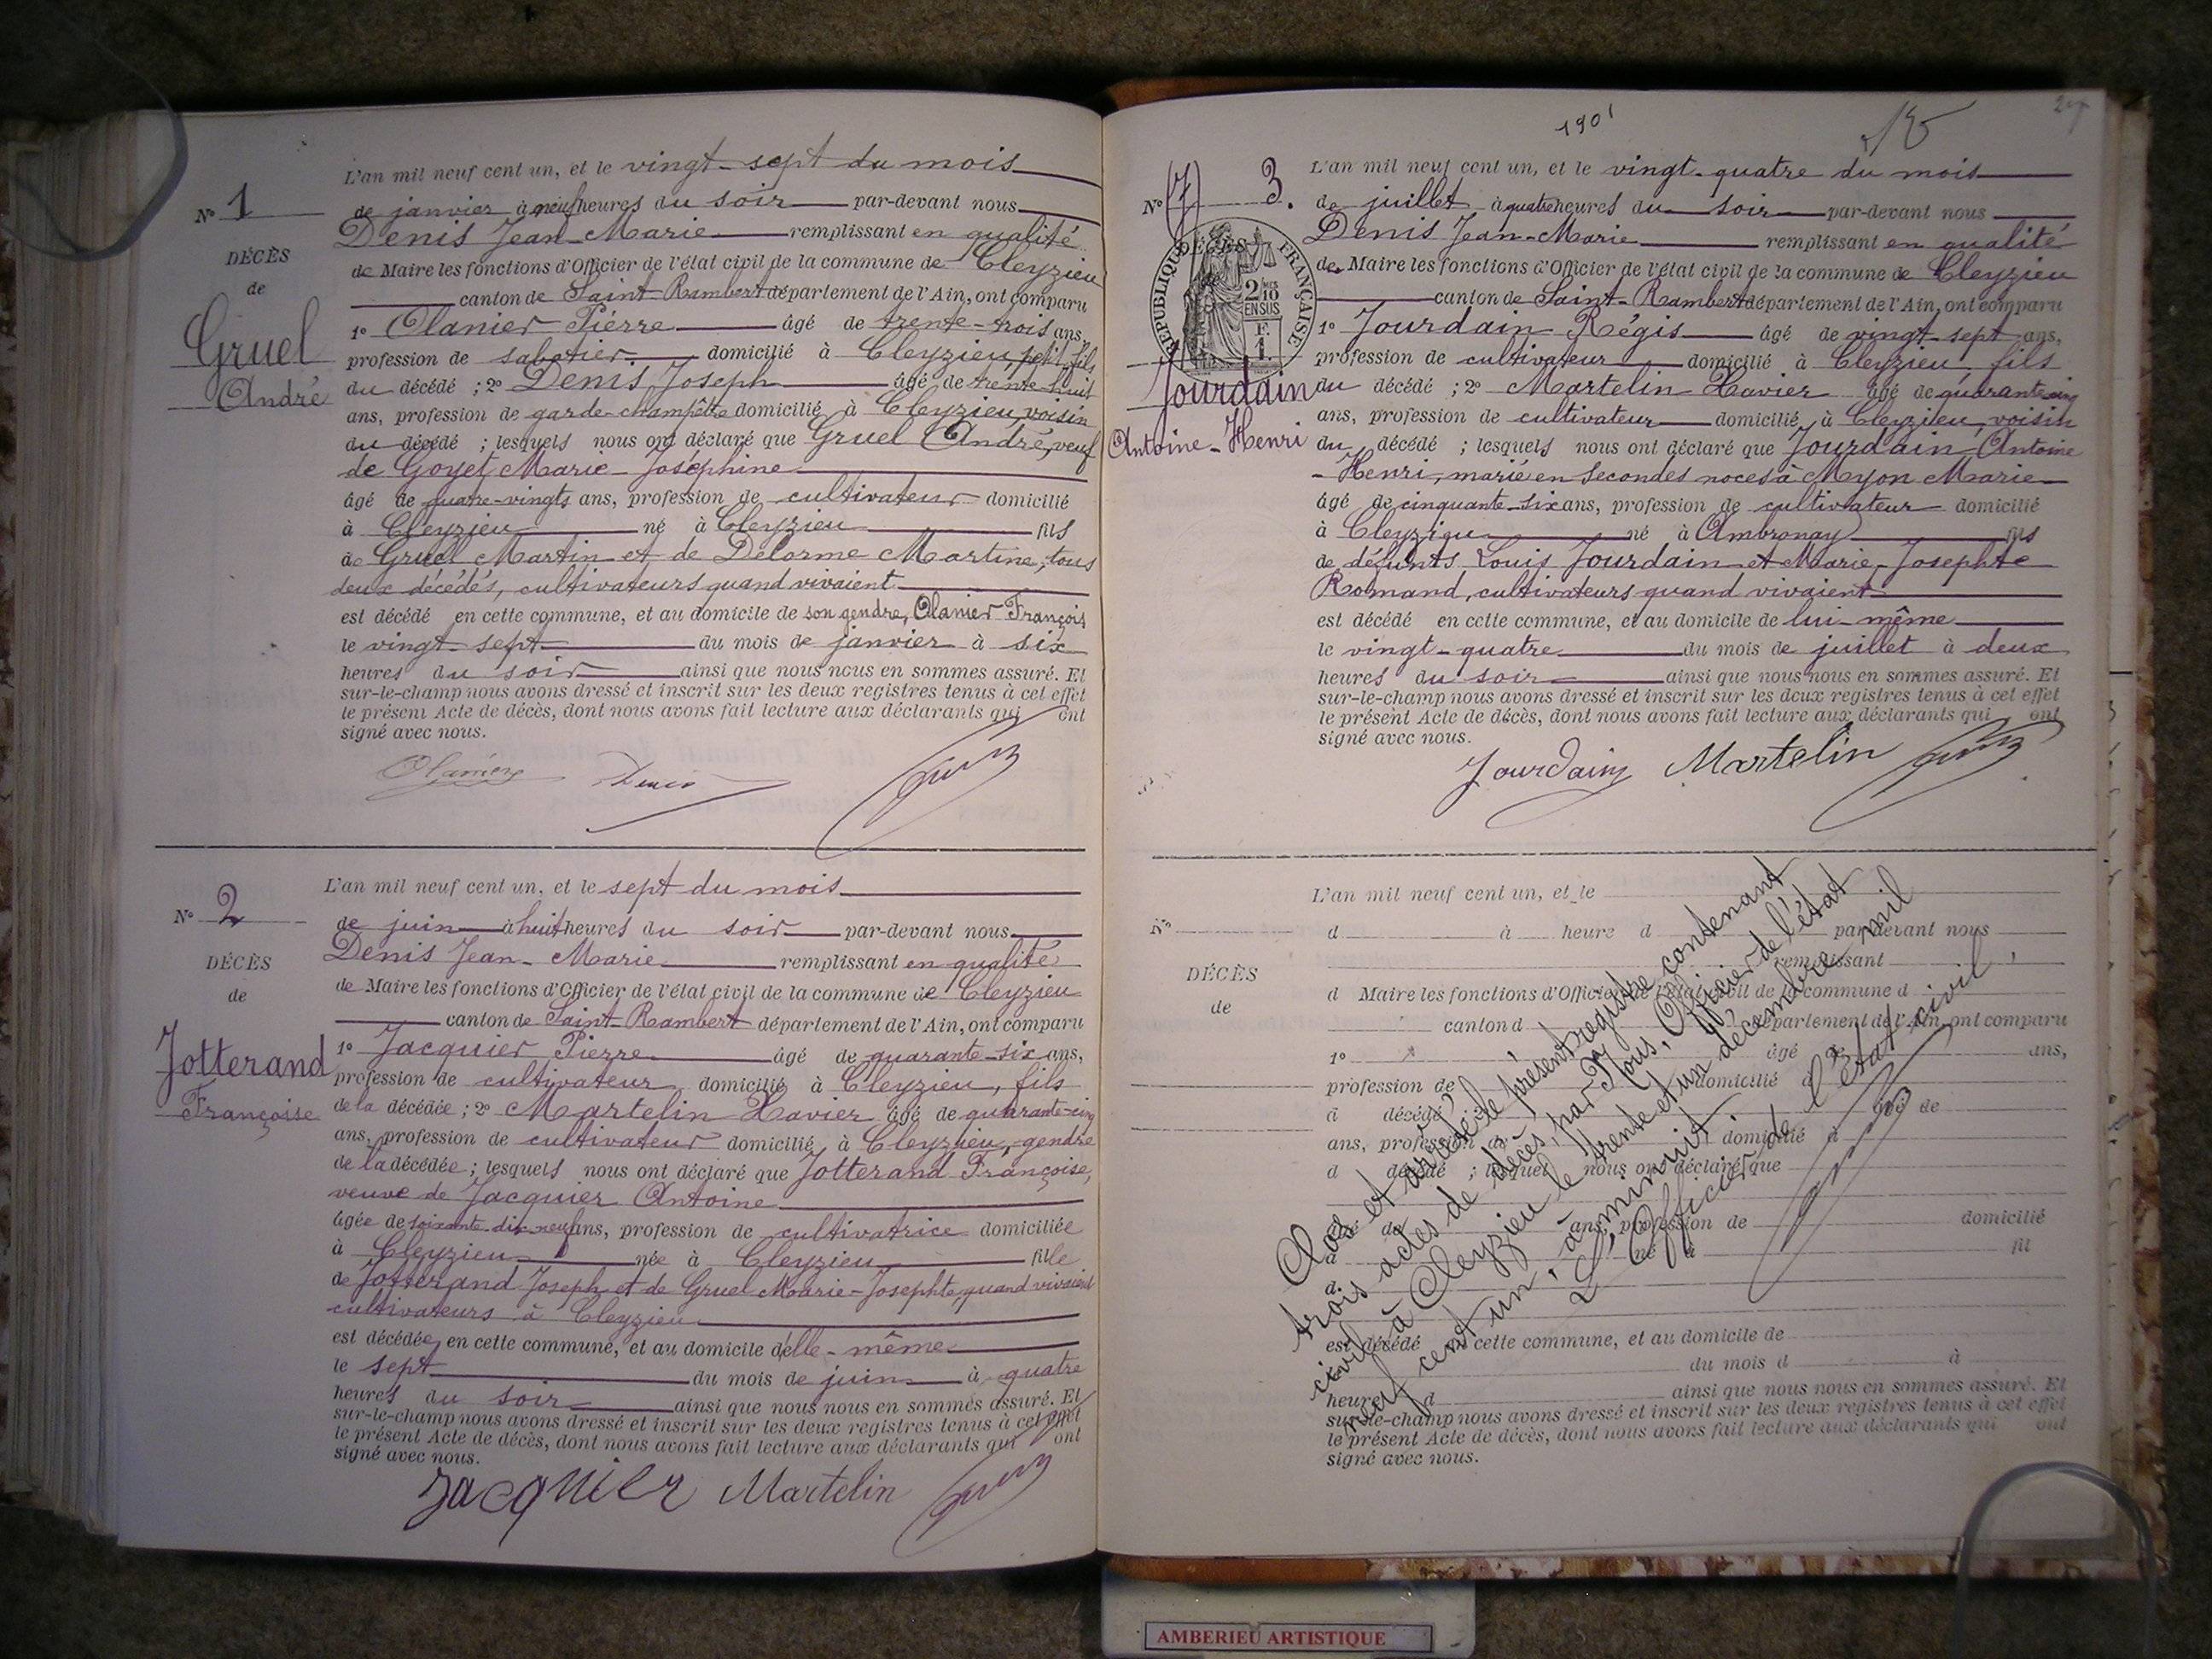 N° 1
DÉCÈS
de
Gruel
André
L'an mil neuf cent un, et le vingt-sept du mois
de janvier à neuf heures du soir par-devant nous
Denis Jean-Marie remplissant en qualité
de Maire les fonctions d'Officier de l'état civil de la commune de Cleyzieu
canton de Saint-Rambert département de l'Ain, ont comparu
1° Olanier Pierre âgé de trente-trois ans,
profession de sabotier domicilié à Cleyzieu, petit fils
du décédé ; 2° Denis Joseph âgé de trente-huit
ans, profession de garde-champêtre domicilié à Cleyzieu, voisin
du décédé ; lesquels nous ont déclaré que Gruel André, veuf
de Goyet Marie-Joséphine
âgé de quatre-vingts ans, profession de cultivateur domicilié
à Cleyzieu né à Cleyzieu fils
de Gruel Martin et de Delorme Martine, tous
deux décédés, cultivateurs quand vivaient
est décédé en cette commune, et au domicile de son gendre, Olanier François
le vingt-sept du mois de janvier à six
heures du soir ainsi que nous nous en sommes assuré. Et
sur-le-champ nous avons dressé et inscrit sur les deux registres tenus à cet effet
le présent Acte de décès, dont nous avons fait lecture aux déclarants qui ont
signé avec nous.
Olanier Denis
N° 2
DÉCÈS
de
Jotterand
Françoise
L'an mil neuf cent un, et le sept du mois
de juin à huit heures du soir par-devant nous
Denis Jean-Marie remplissant en qualité
de Maire les fonctions d'Officier de l'état civil de la commune de Cleyzieu
canton de Saint-Rambert département de l'Ain, ont comparu
1° Jacquier Pierre âgé de quarante-six ans,
profession de cultivateur domicilié à Cleyzieu, fils
de la décédée ; 2° Martelin Xavier âgé de quarante-cinq
ans, profession de cultivateur domicilié à Cleyzieu, gendre
de la décédée ; lesquels nous ont déclaré que Jotterand Françoise,
veuve de Jacquier Antoine
âgée de soixante-dix-neuf ans, profession de cultivatrice domiciliée
à Cleyzieu née à Cleyzieu fille
de Jotterand Joseph et de Gruel Marie-Josephte, quand vivaient
cultivateurs à Cleyzieu
est décédée en cette commune, et au domicile d'elle-même
le sept du mois de juin à quatre
heures du soir ainsi que nous nous en sommes assuré. Et
sur-le-champ nous avons dressé et inscrit sur les deux registres tenus à cet effet
le présent Acte de décès, dont nous avons fait lecture aux déclarants qui ont
signé avec nous.
Jacquier Martelin
1901
N° (7) 3.
DÉCÈS
RÉPUBLIQUE FRANÇAISE
2/10 EN SUS
1 F.
Jourdain
Antoine-Henri
L'an mil neuf cent un, et le vingt-quatre du mois
de juillet à quatre heures du soir par-devant nous
Denis Jean-Marie remplissant en qualité
de Maire les fonctions d'Officier de l'état civil de la commune de Cleyzieu
canton de Saint-Rambert département de l'Ain, ont comparu
1° Jourdain Régis âgé de vingt-sept ans,
profession de cultivateur domicilié à Cleyzieu, fils
du décédé ; 2° Martelin Xavier âgé de quarante-cinq
ans, profession de cultivateur domicilié à Cleyzieu, voisin
du décédé ; lesquels nous ont déclaré que Jourdain Antoine
-Henri, marié en secondes noces à Myon Marie
âgé de cinquante-six ans, profession de cultivateur domicilié
à Cleyzieu né à Ambronay fils
de défunts Louis Jourdain et Marie-Josephte
Romand, cultivateurs quand vivaient
est décédé en cette commune, et au domicile de lui-même
le vingt-quatre du mois de juillet à deux
heures du soir ainsi que nous nous en sommes assuré. Et
sur-le-champ nous avons dressé et inscrit sur les deux registres tenus à cet effet
le présent Acte de décès, dont nous avons fait lecture aux déclarants qui ont
signé avec nous.
Jourdain Martelin
N°
DÉCÈS
de
L'an mil neuf cent un, et le
d à heure d par-devant nous
remplissant
d Maire les fonctions d'Officier de l'état civil de la commune d
canton d département de l'Ain, ont comparu
1° âgé de ans,
profession de domicilié à
d décédé ; 2° âgé de
ans, profession de domicilié à
d décédé ; lesquels nous ont déclaré que
âgé de ans, profession de domicilié
à né à fil
d
est décédé en cette commune, et au domicile de
le du mois d à
heure d ainsi que nous nous en sommes assuré. Et
sur-le-champ nous avons dressé et inscrit sur les deux registres tenus à cet effet
le présent Acte de décès, dont nous avons fait lecture aux déclarants qui ont
signé avec nous.
Clos et arrêté le présent registre contenant
trois actes de décès, par Nous, Officier de l'état
civil à Cleyzieu le trente et un décembre mil
neuf cent un, à minuit.
L'Officier de l'état civil,
AMBERIEU ARTISTIQUE